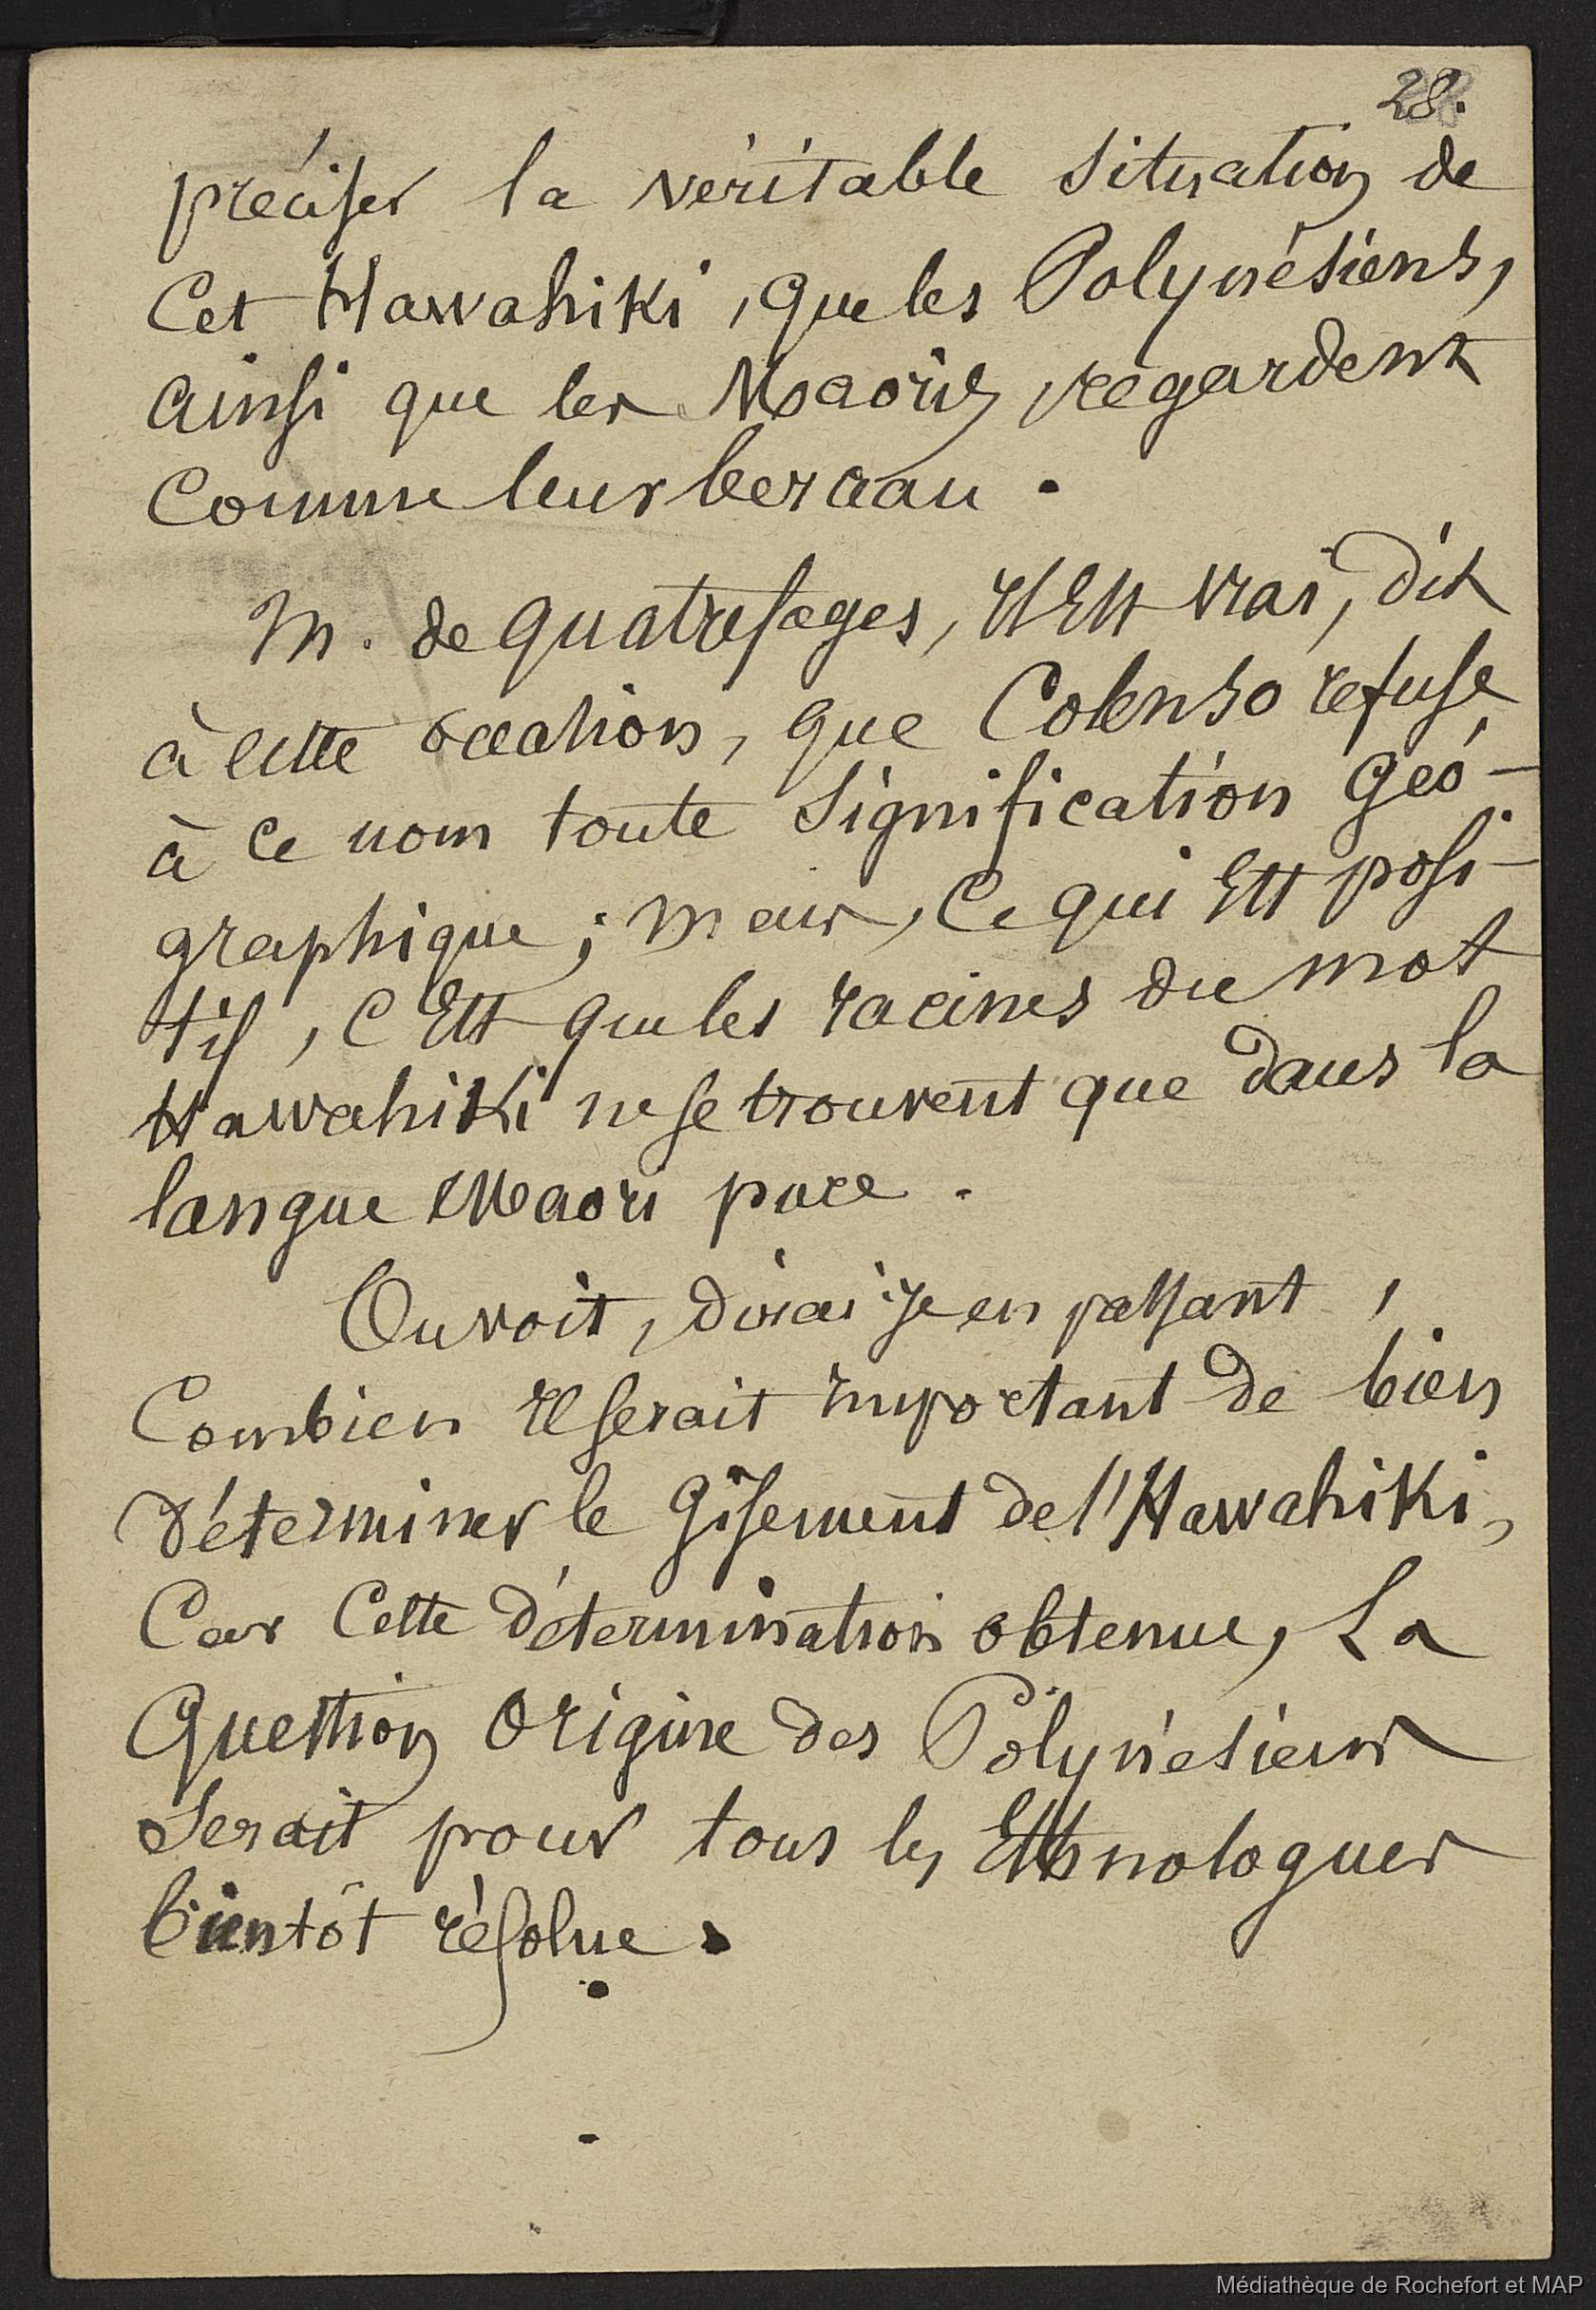 28.
préciser la véritable situation de
Cet Hawahiki, que les Polynésiens,
ainsi que les Maoris, regardent
Comme leur berceau.
M. de quatrefages, il Est vrai, dit
à cette occation, que Colenso refuse
à ce nom toute signification géo-
graphique ; mais, Ce qui Est posi-
tif, c'Est que les racines du mot
Hawahiki ne se trouvent que dans la
langue Maori pure.
On voit, dirai-je en passant,
Combien il serait important de bien
déterminer le gisement de l'Hawahiki,
Car Cette détermination obtenue, La
Question Origine des Polynésiens
Serait pour tous les Ethnologues
bientôt résolue.
Médiathèque de Rochefort et MAP